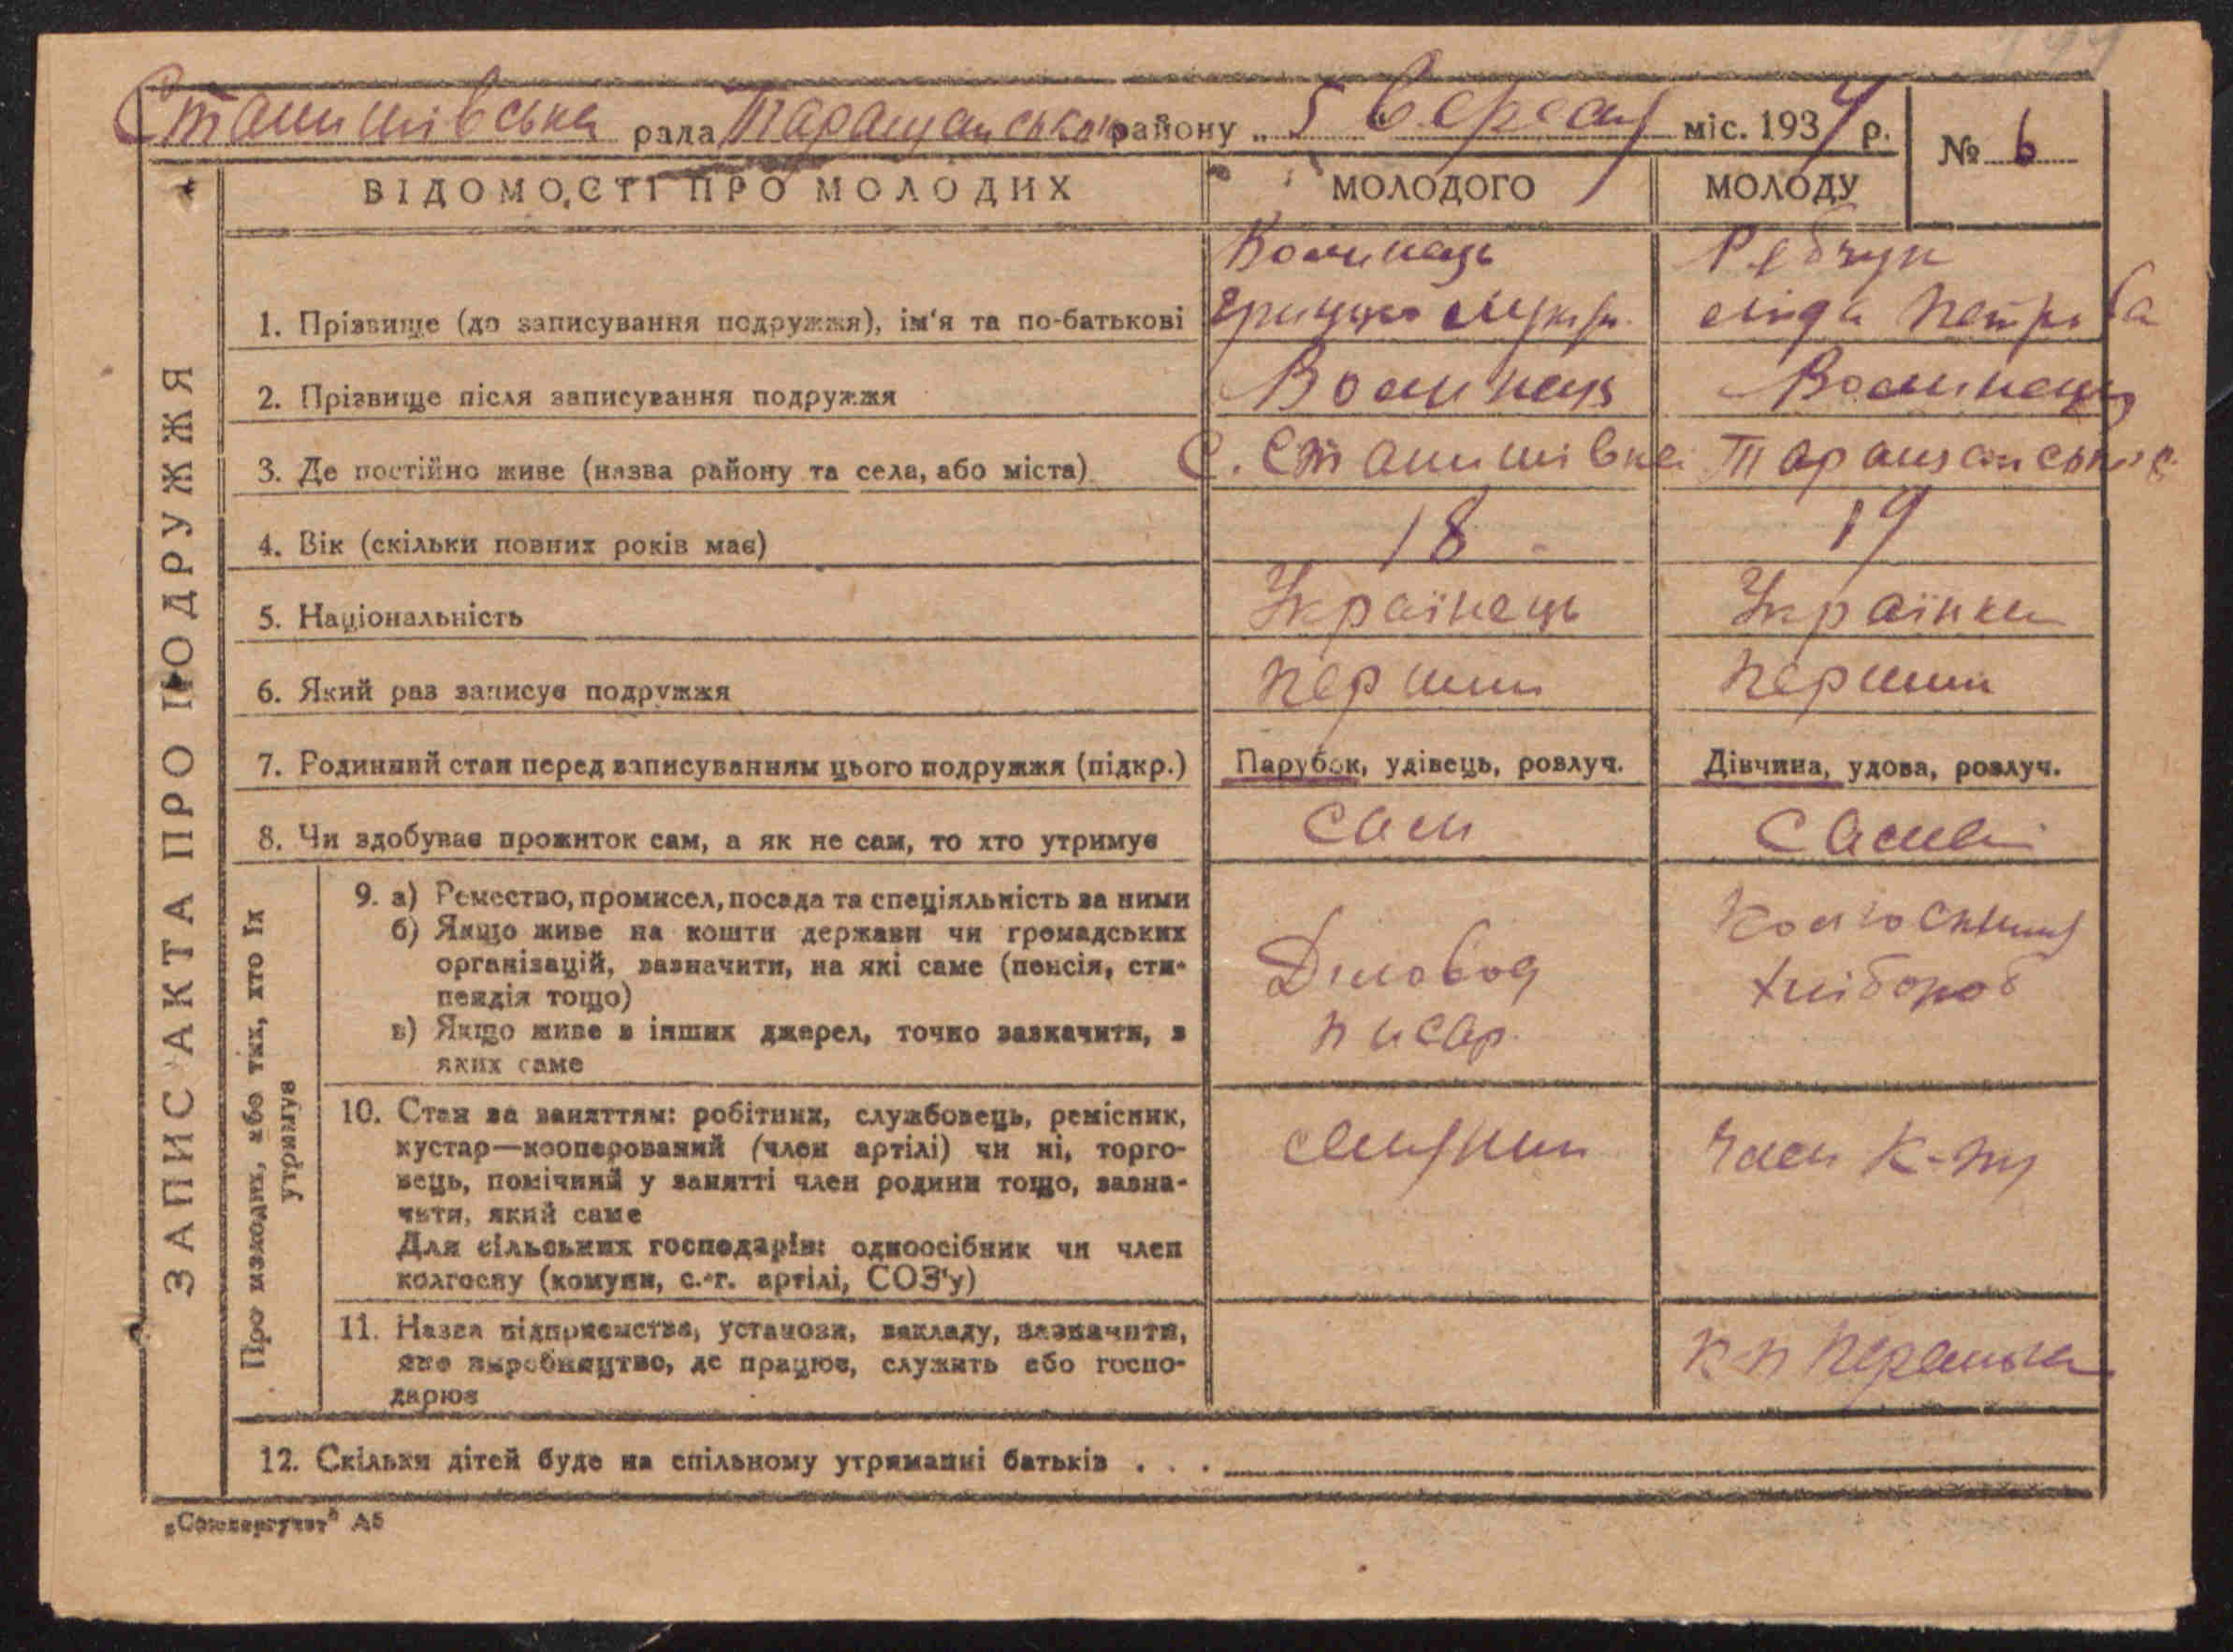 Станишівська рада Таращанського району „5 вересня міс. 1934 р.
№ 6
ЗАПИС АКТА ПРО ПОДРУЖЖЯ
ВІДОМОСТІ ПРО МОЛОДИХ МОЛОДОГО МОЛОДУ
Волинець Рябчун
1. Прізвище (до записування подружжя), ім'я та по-батькові Грицько Лука Петрова
2. Прізвище після записування подружжя Волинець Волинець
3. Де постійно живе (назва району та села, або міста) С. Станишівка Таращанськ
4. Вік (скільки повних років має) 18 19
5. Національність Українець Українка
6. Який раз записує подружжя перший перший
7. Родинний стан перед записуванням цього подружжя (підкр.) Парубок, удівець, розлуч. Дівчина, удова, розлуч.
8. Чи здобуває прожиток сам, а як не сам, то хто утримує сам сама
Про низходних, або тих, хто їх утримує
9. а) Ремество, промисел, посада та спеціяльність за ними
б) Якщо живе на кошти держави чи громадських
організацій, зазначити, на які саме (пенсія, сти-
пендія тощо)
в) Якщо живе з інших джерел, точно зазначити, з
яких саме
Діловод
писар.
Колгоспниця
хлібороб
10. Стан за заняттям: робітник, службовець, ремісник,
кустар—кооперований (член артілі) чи ні, торго-
вець, помічний у занятті член родини тощо, зазна-
чити, який саме
Для сільських господарів: одноосібник чи член
колгоспу (комуни, с.-г. артілі, СОЗ'у)
член к-пу
11. Назва підприємства, установи, закладу, зазначити,
яке виробництво, де працює, служить або госпо-
дарює
12. Скільки дітей буде на спільному утриманні батьків . . .
А5